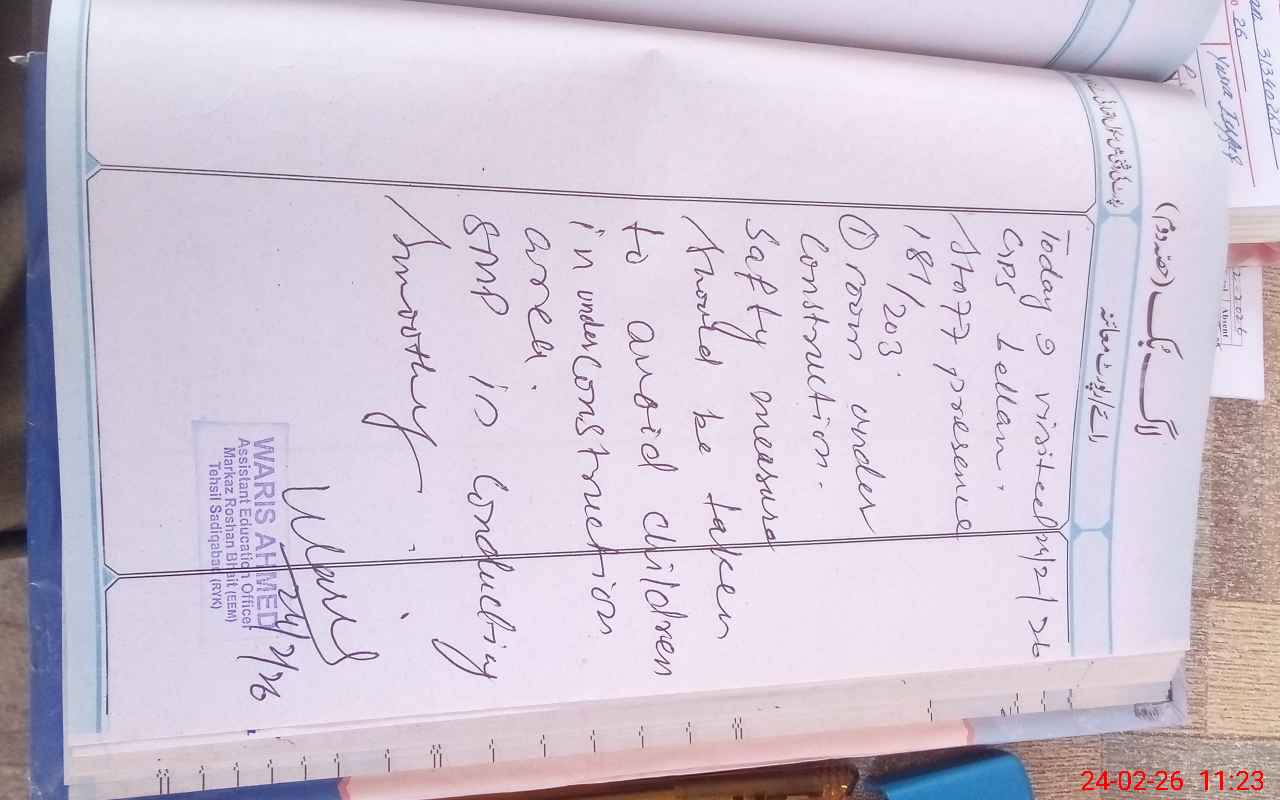 لاگ بک (حصہ دوم)
Today I visited 24/2/26
GPS Lellan.
Staff presence
181/203
① room under
Construction.
Safty measure
should be taken
to avoid children
in under Construction
area.
SMP is Conducting
Smoothy.
24/2/26
WARIS AHMED
Assistant Education Officer
Markaz Roshan Bhait (EEM)
Tehsil Sadiqabad (RYK)
26
Absent
24-02-26 11:23